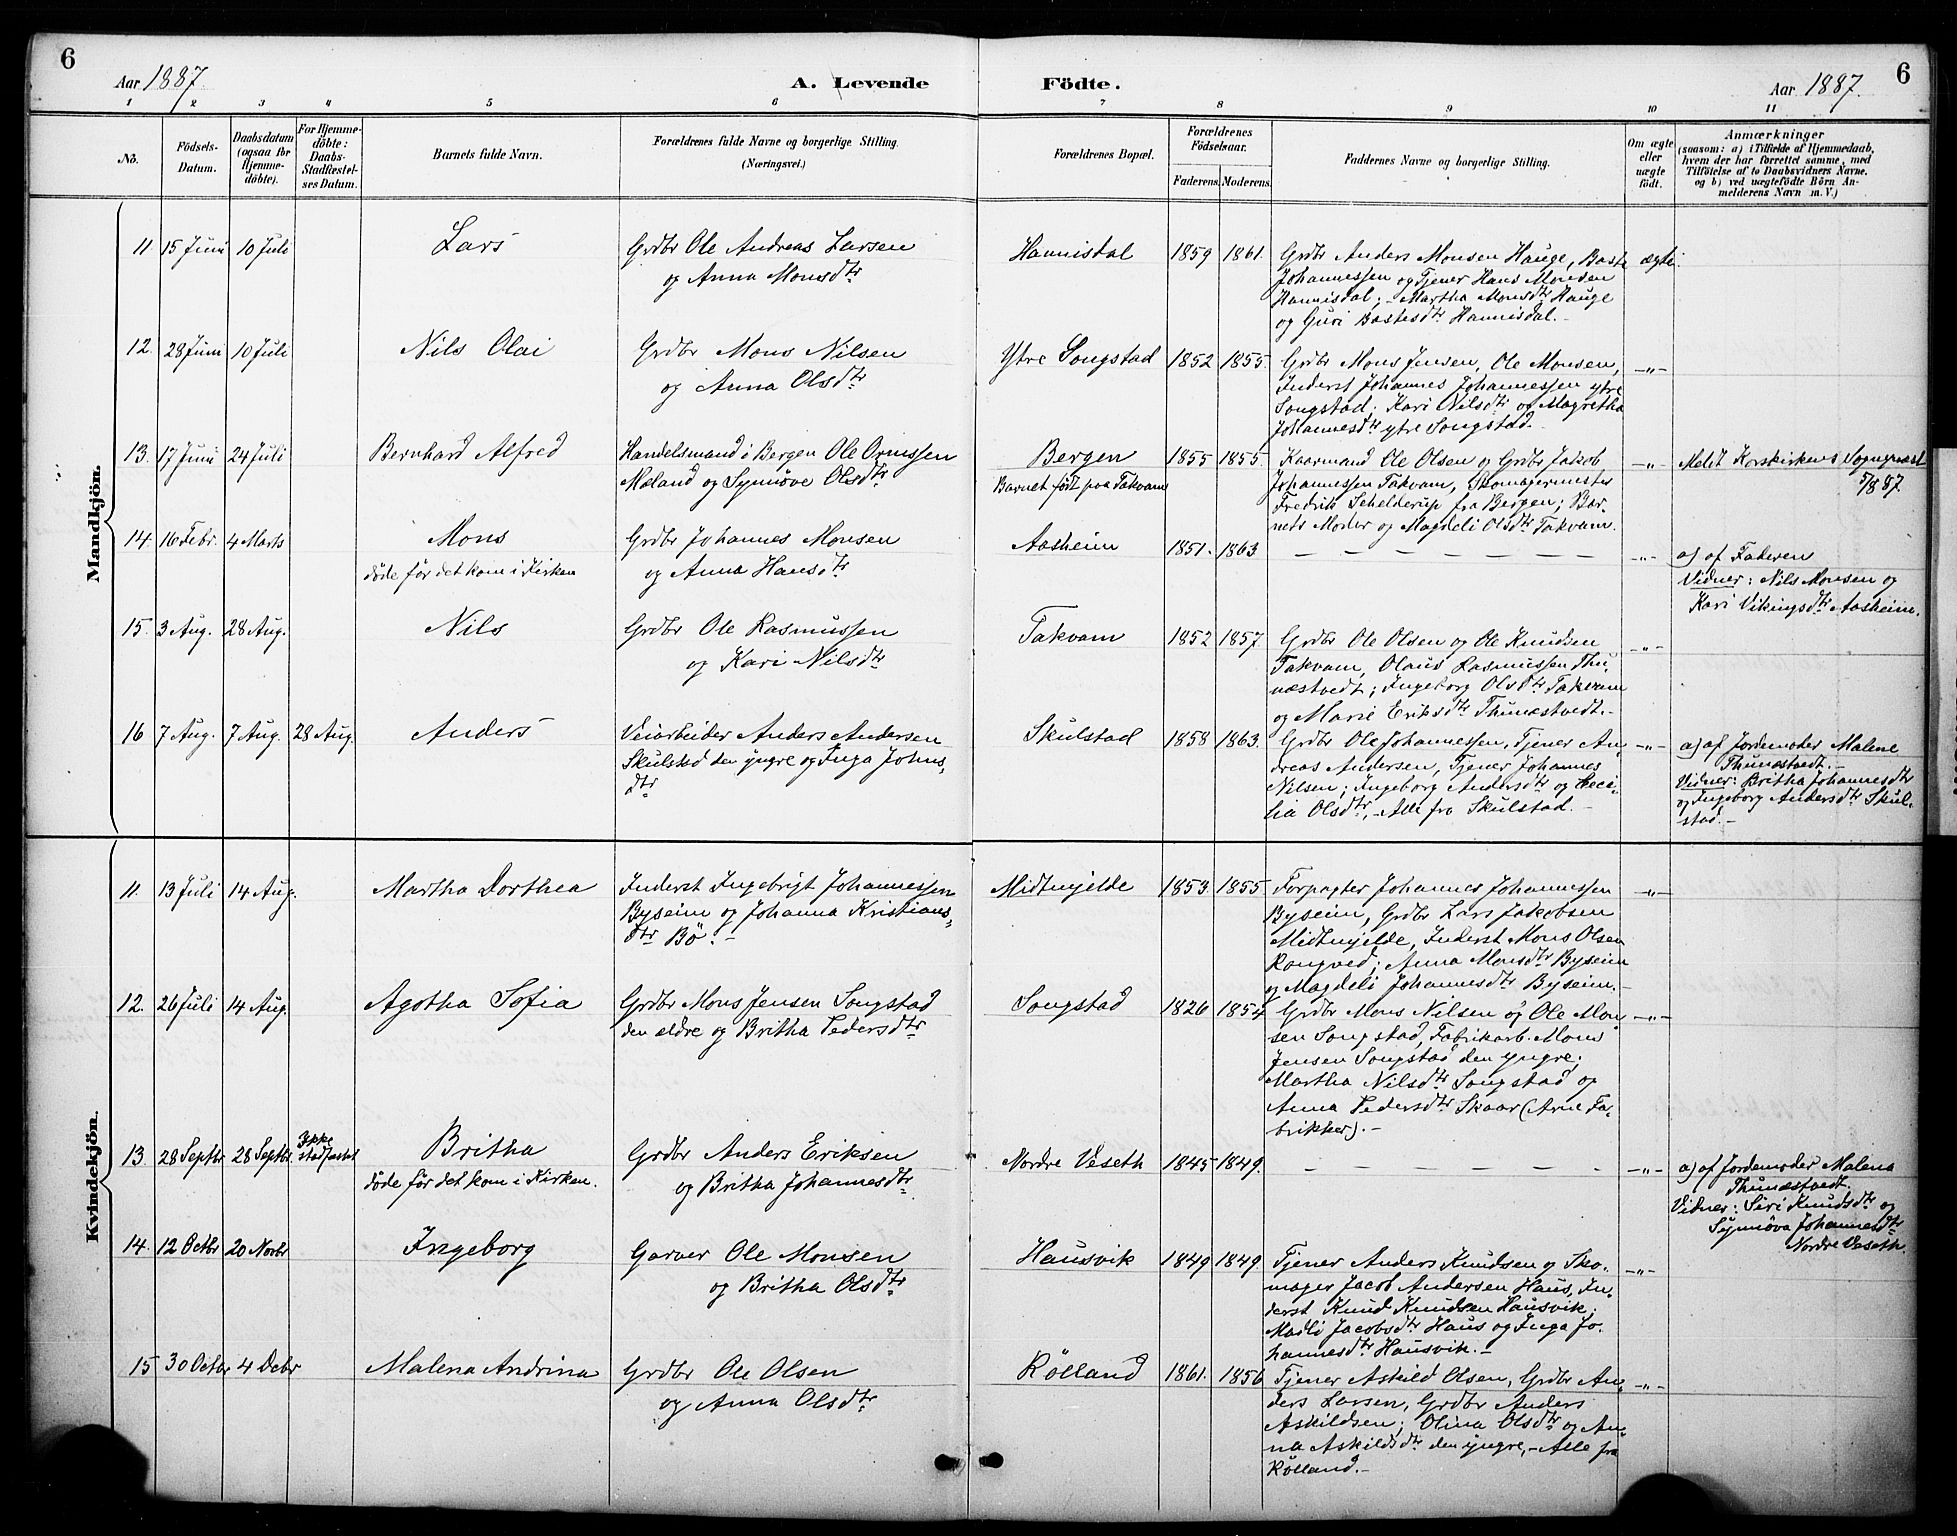 6
Aar 1887.
A. Levende
Födte.
Aar 1887.
6
1 2 3 4 5 6 7 8 9 10 11
No.
Födsels-
Datum.
Daabsdatum
(ogsaa for
Hjemme-
döbte).
For Hjemme-
döbte:
Daabs-
Stadfæstel-
ses Datum.
Barnets fulde Navn.
Forældrenes fulde Navne og borgerlige Stilling.
(Næringsvei.)
Forældrenes Bopæl.
Forældrenes
Födselsaar.
Faderens. Moderens.
Faddernes Navne og borgerlige Stilling.
Om ægte
eller
uægte
födt.
Anmærkninger
(saasom: a) i Tilfælde af Hjemmedaab,
hvem der har forrettet samme, med
Tilföielse af to Daabsvidners Navne,
og b) ved uægtefödte Börn An-
melderens Navn m. V.)
Mandkjön.
11. 15 Juni 10 Juli Lars
Grdbr Ole Andreas Larsen
og Anna Monsdtr
Hannisdal 1859 1861.
Grdbr Anders Monsen Hauge, Baste
Johannessen og Tjener Hans Monsen
Hannisdal; – Martha Monsdtr Hauge
og Guri Bastesdtr Hannisdal. –
ægte.
12. 28 Juni 10 Juli Nils Olai
Grdbr Mons Nilsen
og Anna Olsdtr
Ytre Songstad 1852 1855.
Grdbr Mons Jensen, Ole Monsen,
Inderst Johannes Johannessen ytre
Songstad; Kari Nilsdtr og Magretha
Johannesdtr ytre Songstad. –
–"–
13. 17 Juni 24 Juli Bernhard Alfred
Handelsmand i Bergen Ole Ormssen
Mæland og Synnöve Olsdtr
Bergen
Barnet født paa Takvam
1855 1855.
Kaarmand Ole Olsen og Grdbr Jakob
Johannessen Takvam, Skomagermester
Fredrik Schelderup fra Bergen; Bar-
nets Moder og Magdeli Olsdtr Takvam.
–"–
Meldt Korskirkens Sognepræst
5/8 87.
14. 16 Febr. 4 Marts Mons
døde før det kom i Kirken
Grdbr Johannes Monsen
og Anna Hansdtr
Aasheim 1851. 1863
– – – – – – –
–"–
a) af Faderen
Vidner: Nils Monsen og
Kari Vikingsdtr Aasheim.
15. 3 Aug. 28 Aug. Nils
Grdbr Ole Rasmussen
og Kari Nilsdtr
Takvam 1852 1857.
Grdbr Ole Olsen og Ole Knudsen
Takvam, Olaus Rasmussen Thu-
næstvedt; Ingeborg Olsdtr Takvam
og Marie Eriksdtr Thunæstvedt. –
–"–
16 7 Aug. 7 Aug. 28 Aug. Anders
Veiarbeider Anders Andersen
Skulstad den yngre og Inga Johns-
dtr
Skulstad 1858 1863.
Grdbr Ole Johannessen, Tjener An-
dreas Andersen, Tjener Johannes
Nilsen; Ingeborg Andersdtr og Ceci-
lia Olsdtr, – Alle fra Skulstad. –
–"–
a) af Jordemoder Malene
Thunæstvedt. –
Vidner: Britha Johannesdtr
og Ingeborg Andersdtr Skul-
stad. –
Kvindekjön.
11. 13 Juli 14 Aug. Martha Dorthea
Inderst Ingebrigt Johannessen
Byseim og Johanna Kristians-
dtr Bö. –
Midtmjelde 1853. 1855
Forpagter Johannes Johannessen
Byseim, Grdbr Lars Jakobsen
Midtmjelde, Inderst Mons Olsen
Rongved; Anna Monsdtr Byseim
og Magdeli Johannesdtr Byseim. –
–"–
12. 26 Juli 14 Aug. Agotha Sofia
Grdbr Mons Jensen Songstad
den ældre og Britha Pedersdtr
Songstad 1826 1854
Grdbr Mons Nilsen og Ole Mon-
sen Songstad, Fabrikarb. Mons
Jensen Songstad den yngre;
Martha Nilsdtr Songstad og
Anna Pedersdtr Skaar (Arne Fa-
brikker). –
–"–
13. 28 Septbr 28 Septbr Ikke
stadfæstet
Britha
døde før det kom i Kirken.
Grdbr Anders Eriksen
og Britha Johannesdtr
Nordre Veseth 1845 1849.
– – – – – – –
–"–
a) af Jordemoder Malena
Thunæstvedt.
Vidner: Siri Knudsdtr og
Synnöva Johannesdtr
Nordre Veseth.
14. 12 Octbr 20 Novbr Ingeborg
Garver Ole Monsen
og Britha Olsdtr
Hausvik 1849 1849.
Tjener Anders Knudsen og Sko-
mager Jacob Andersen Haus, In-
derst Knud Knudsen Hausvik;
Madli Jacobsdtr Haus og Inga Jo-
hannesdtr Hausvik. –
–"–
15 30 Octbr 4 Decbr Malena Andrina
Grdbr Ole Olsen
og Anna Olsdtr
Rölland 1861. 1856
Tjener Askild Olsen, Grdbr An-
ders Larsen, Grdbr Anders
Askildsen; Olina Olsdtr og An-
na Askildsdtr den yngre, – Alle fra
Rölland. –
–"–